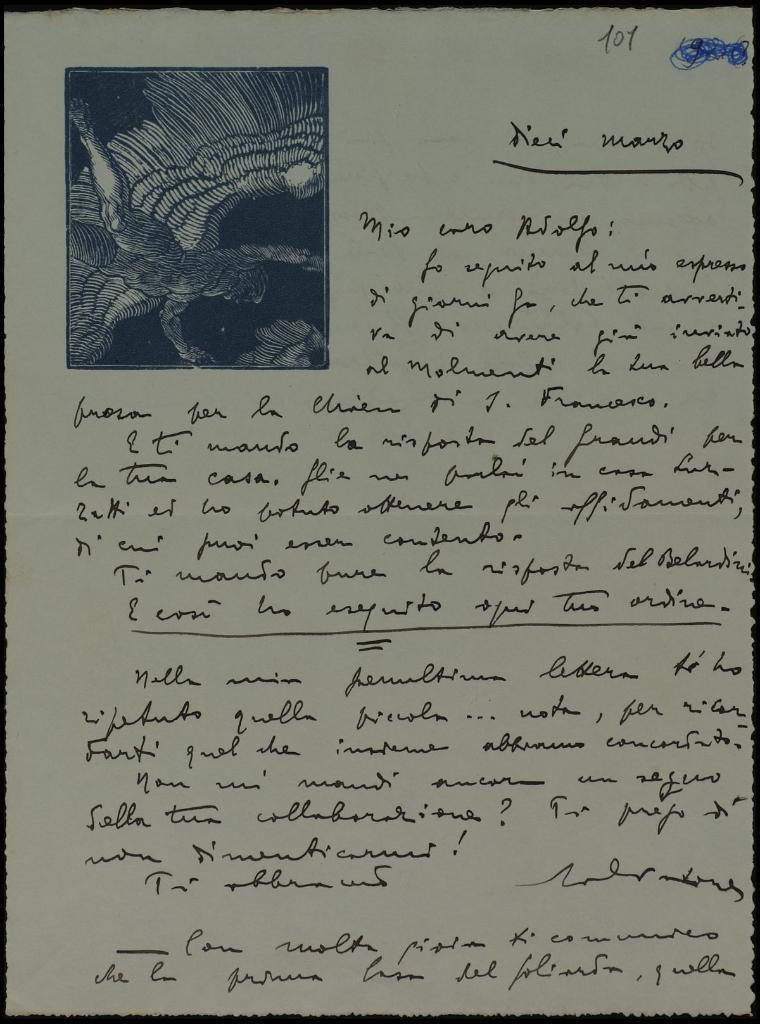 101
dieci marzo
Mio caro Adolfo:
fo seguito al mio espresso
di giorni fa, che ti avverti-
va di avere già inviato
al Molmenti la tua bella
prosa per la Chiesa di S. Francesco.
E ti mando la risposta del Grandi per
la tua casa. Glie ne parlai in casa Luz-
zatti ed ho potuto ottenere gli affidamenti,
di cui puoi esser contento.
Ti mando pure la risposta del Belardini.
E così ho eseguito ogni tuo ordine.
Nella mia penultima lettera ti ho
ripetuto quella piccola ... nota, per ricor-
darti quel che insieme abbiamo concordato.
Non mi mandi ancora un segno
della tua collaborazione? Ti prego di
non dimenticarmi!
Ti abbraccio
Salvatore
— Con molta gioia ti comunico
che la prima casa del Goliardo, quella